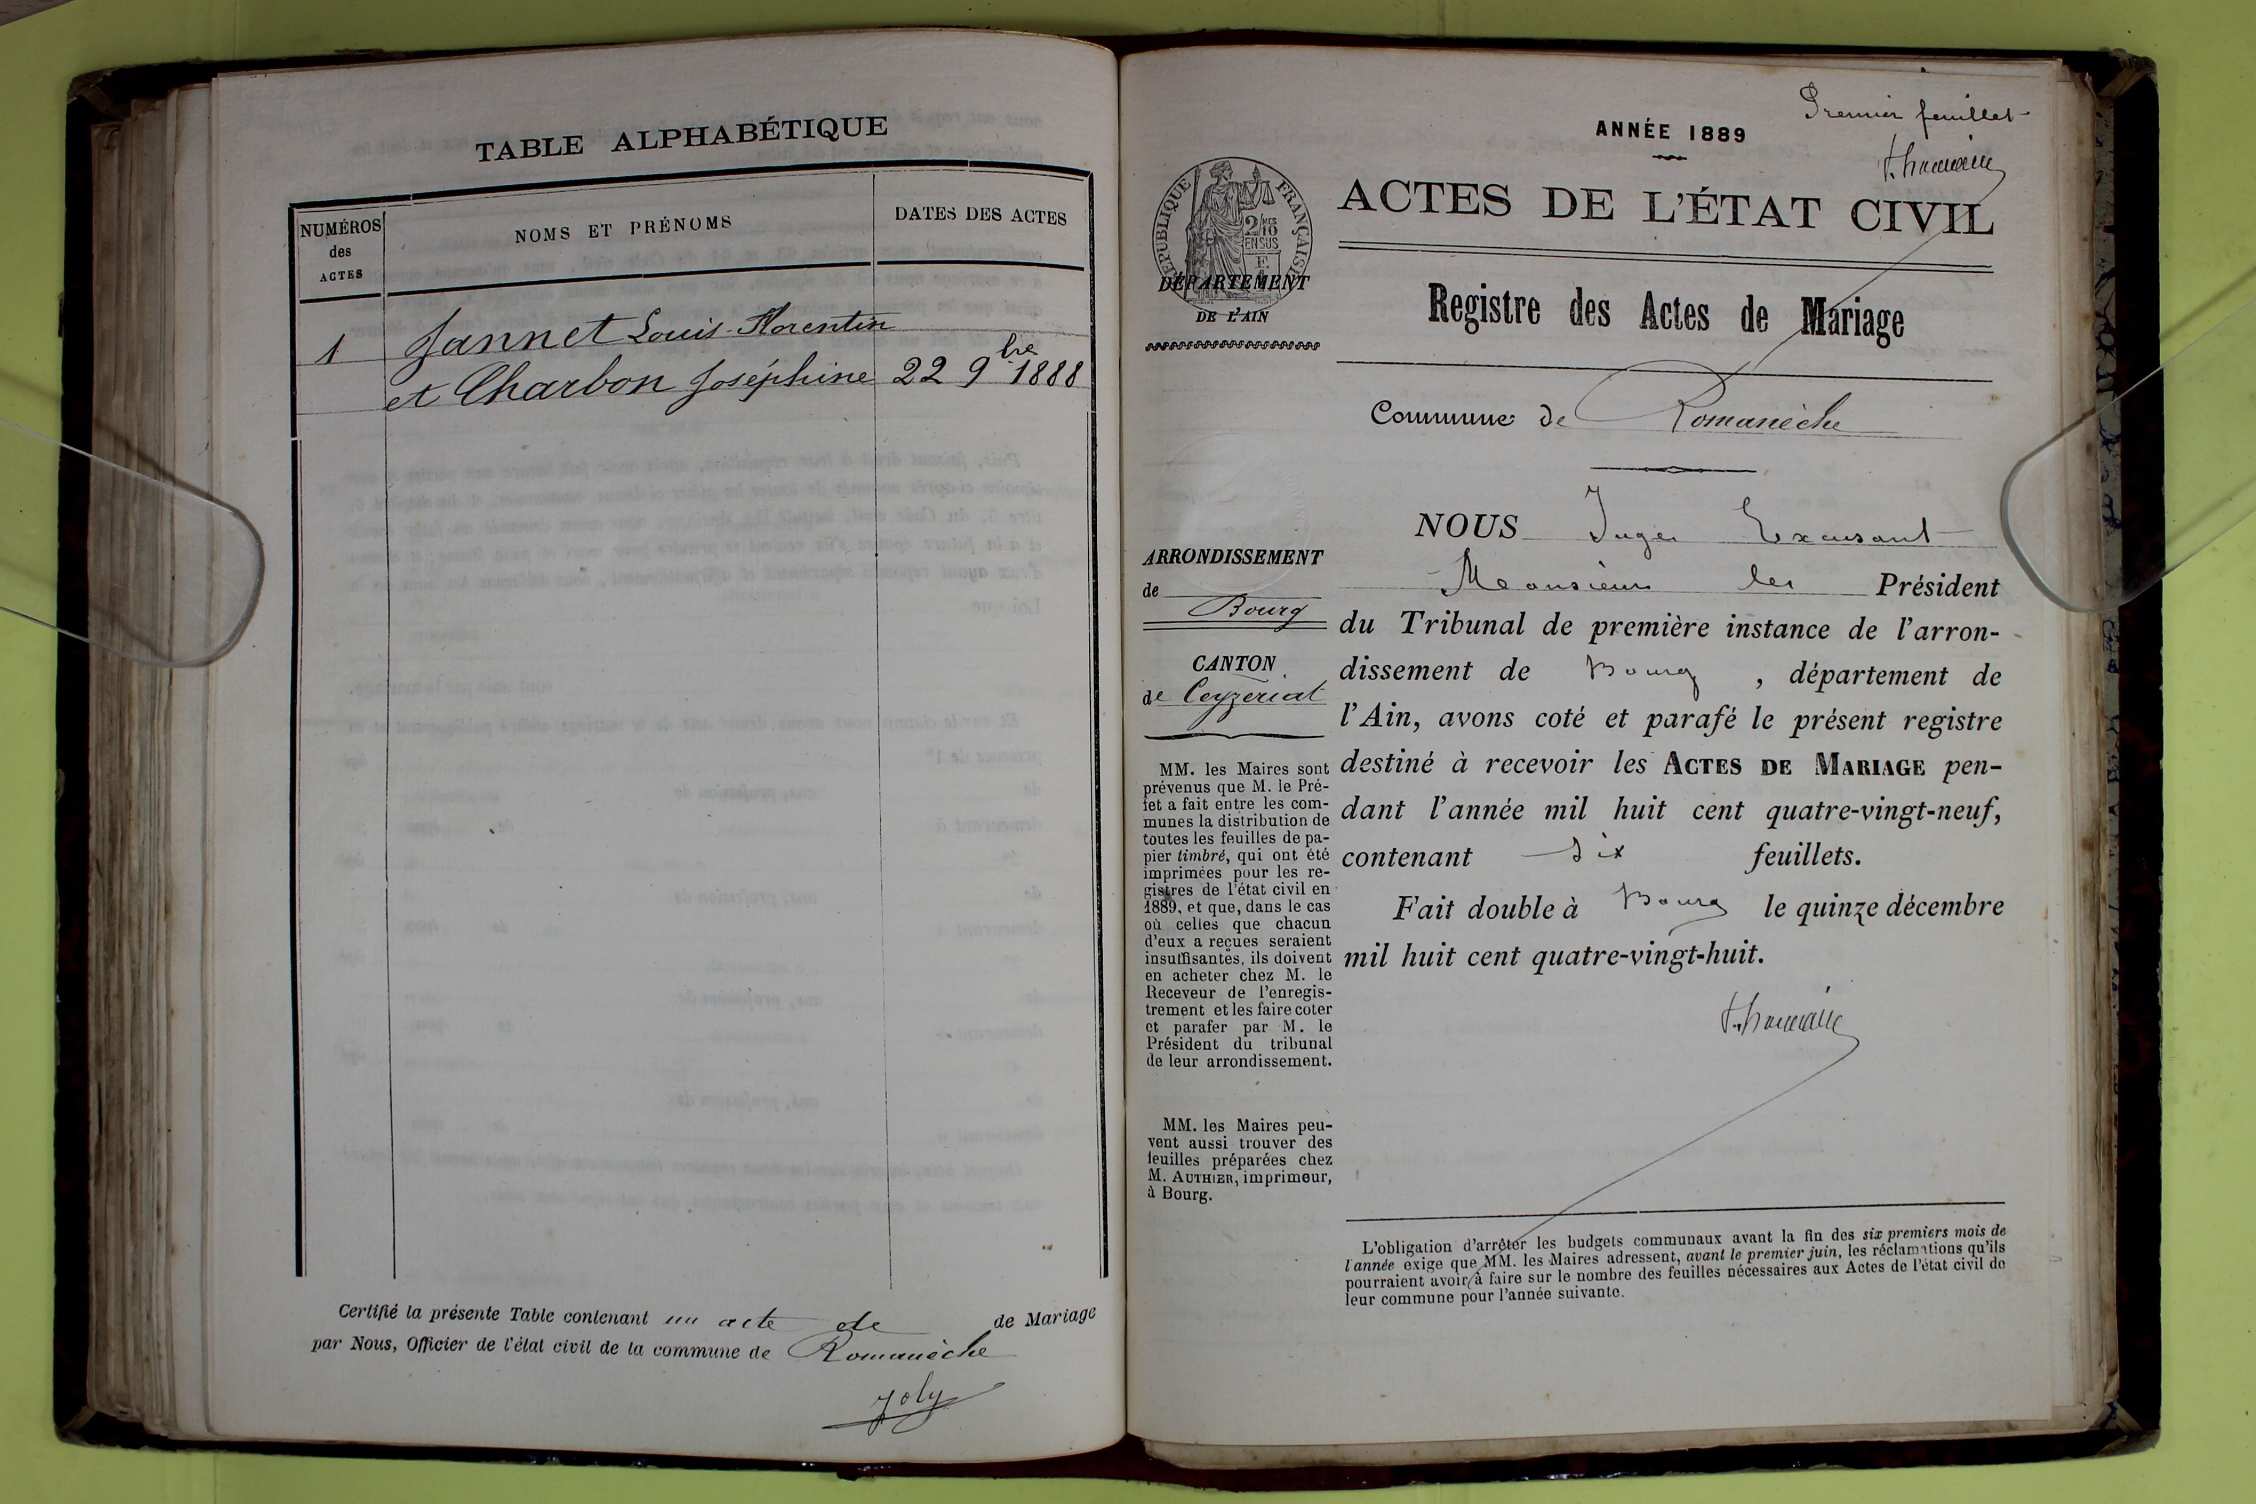 TABLE ALPHABÉTIQUE
NUMÉROS
des
ACTES
NOMS ET PRÉNOMS
DATES DES ACTES
1 Jannet Louis-Florentin
et Charbon Joséphine 22 9bre 1888
Certifié la présente Table contenant un acte de de Mariage
par Nous, Officier de l'état civil de la commune de Romanèche
Joly
Premier feuillet
ANNÉE 1889
RÉPUBLIQUE FRANÇAISE
2/10
EN SUS
DÉPARTEMENT
DE L'AIN
ACTES DE L'ÉTAT CIVIL
Registre des Actes de Mariage
Commune de Romanèche
ARRONDISSEMENT
de
Bourg
CANTON
de Ceyzeriat
MM. les Maires sont
prévenus que M. le Pré-
fet a fait entre les com-
munes la distribution de
toutes les feuilles de pa-
pier timbré, qui ont été
imprimées pour les re-
gistres de l'état civil en
1889, et que, dans le cas
où celles que chacun
d'eux a reçues seraient
insuffisantes, ils doivent
en acheter chez M. le
Receveur de l'enregis-
trement et les faire coter
et parafer par M. le
Président du tribunal
de leur arrondissement.
MM. les Maires peu-
vent aussi trouver des
feuilles préparées chez
M. AUTHIER, imprimeur,
à Bourg.
NOUS Juge Excusant
Monsieur le Président
du Tribunal de première instance de l'arron-
dissement de Bourg , département de
l'Ain, avons coté et parafé le présent registre
destiné à recevoir les ACTES DE MARIAGE pen-
dant l'année mil huit cent quatre-vingt-neuf,
contenant six feuillets.
Fait double à Bourg le quinze décembre
mil huit cent quatre-vingt-huit.
L'obligation d'arrêter les budgets communaux avant la fin des six premiers mois de
l'année exige que MM. les Maires adressent, avant le premier juin, les réclamations qu'ils
pourraient avoir à faire sur le nombre des feuilles nécessaires aux Actes de l'état civil de
leur commune pour l'année suivante.